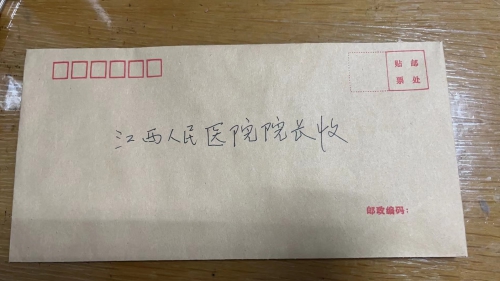 贴 邮
票 处
江西人民医院院长收
邮政编码：